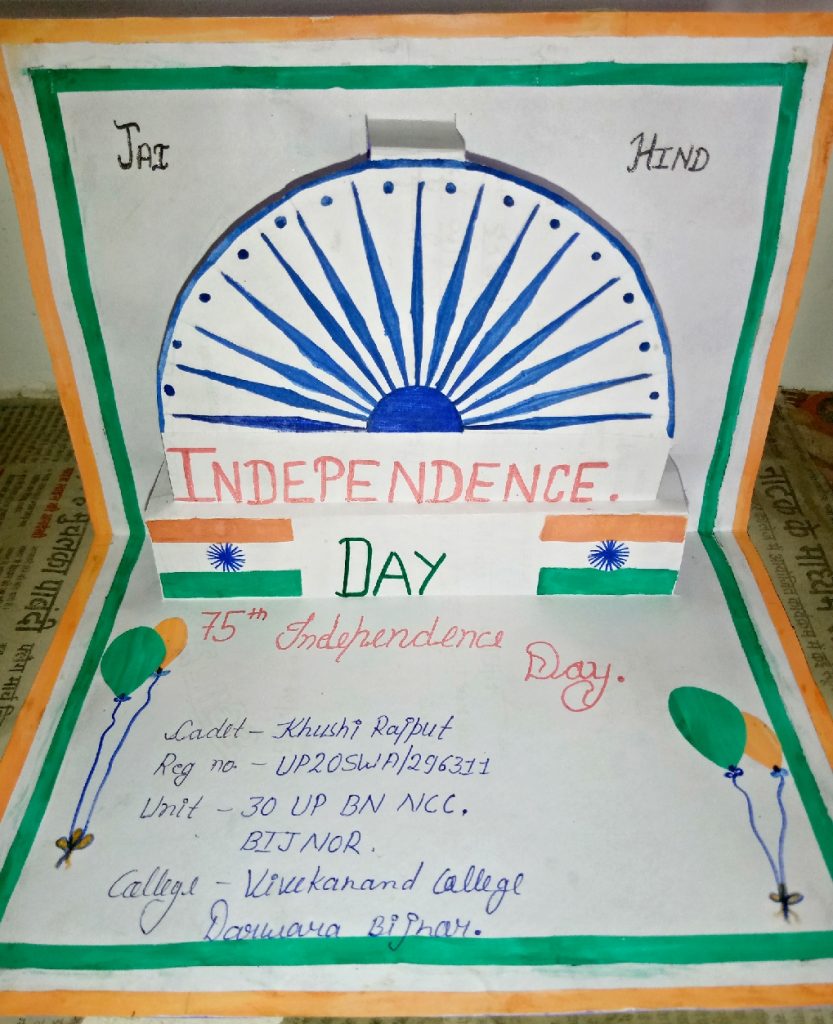 JAI HIND
INDEPENDENCE.
DAY
75th Independence
Day.
Cadet - Khushi Rajput
Reg no. - UP20SWA/296311
Unit - 30 UP BN NCC.
BIJNOR.
College - Vivekanand College
Darwara Bijnor.